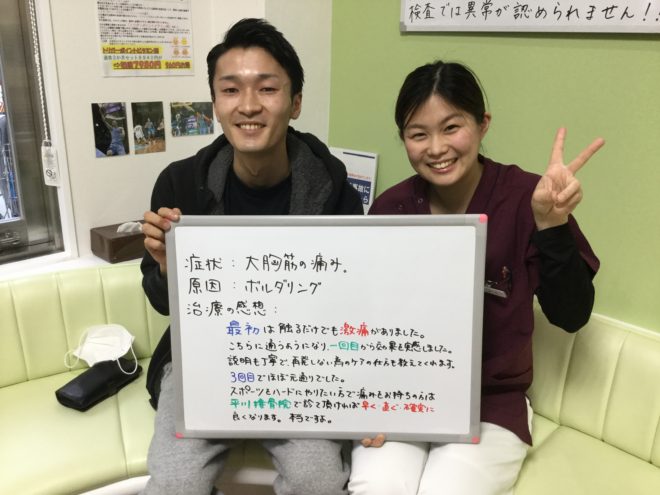 検査では異常が認められません!!
トリガーポイントビタミン鍼
7980円
症状：大胸筋の痛み。
原因：ボルダリング
治療の感想：
最初は触るだけでも激痛がありました。
こちらに通うようになり、一回目から効果を実感しました。
説明も丁寧で、再発しない為のケアの仕方も教えてくれます。
3回目でほぼ元通りでした。
スポーツをハードにやりたい方で痛みをお持ちの方は
平川接骨院で診て頂ければ早く・直ぐ・確実に
良くなります。本当ですよ。